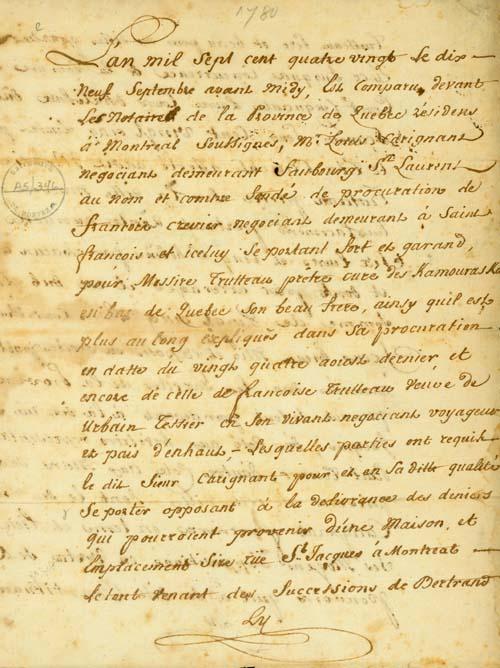 1780
L'an mil Sept cent quatre vingt le dix
Neuf Septembre avant midy, Est Comparu devant
Les Notaires de la Province de Quebec résidens
à Montreal Soussignés, Mr. Louis Carignant
negociant demeurant Fauxbourg St. Laurent
au nom et comme fondé de procuration de
francois crevier negociant demeurant à Saint
francois et iceluy Se portant fort et garand,
pour Messire Trutteau prêtre curé des Kamouraska
en bas de Quebec Son beau frere, ainsy quil est
plus au long expliqués dans Sa procuration
en datte du vingt quatre aoust dernier et
encore de celle de francoise Trutteau veuve de
Urbain Tessier en Son vivant negociant voyageur
et païs d'enhaut, Lesquelles parties ont requis
le dit Sieur Carignant pour et en Sa ditte qualité
Se porter opposant à la delivrance des deniers
qui pourroient provenir d'une Maison, et
Emplacement Sise rüe St. Jacques à Montreal
Le tout venant des Successions de Bertrand